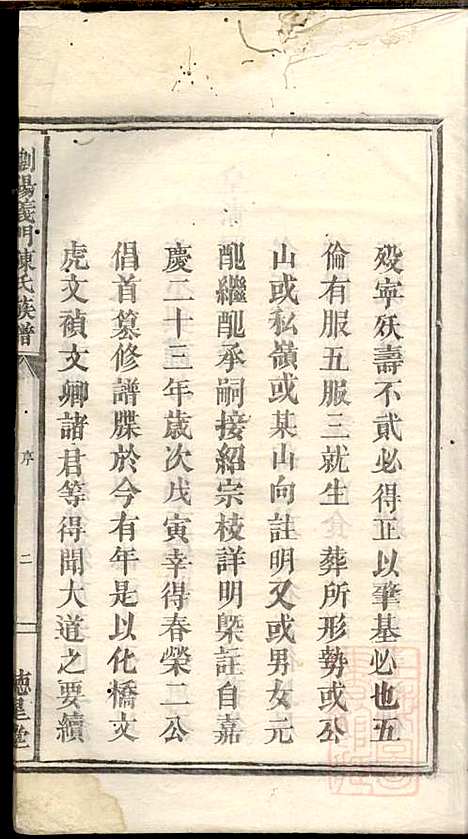 歿寧殀壽不貳必得正以肇基必也五
倫有服五服三就生 葬所形勢或公
山或私嶺或某山向註明又或男女元
配繼配承嗣接紹宗枝詳明槩註自嘉
慶二十三年歳次戊寅幸得春榮二公
倡首纂修譜牒於今有年是以化橋文
虎文禎文卿諸君等得聞大道之要續
劉陽義門陳氏族譜
序
二
德星堂